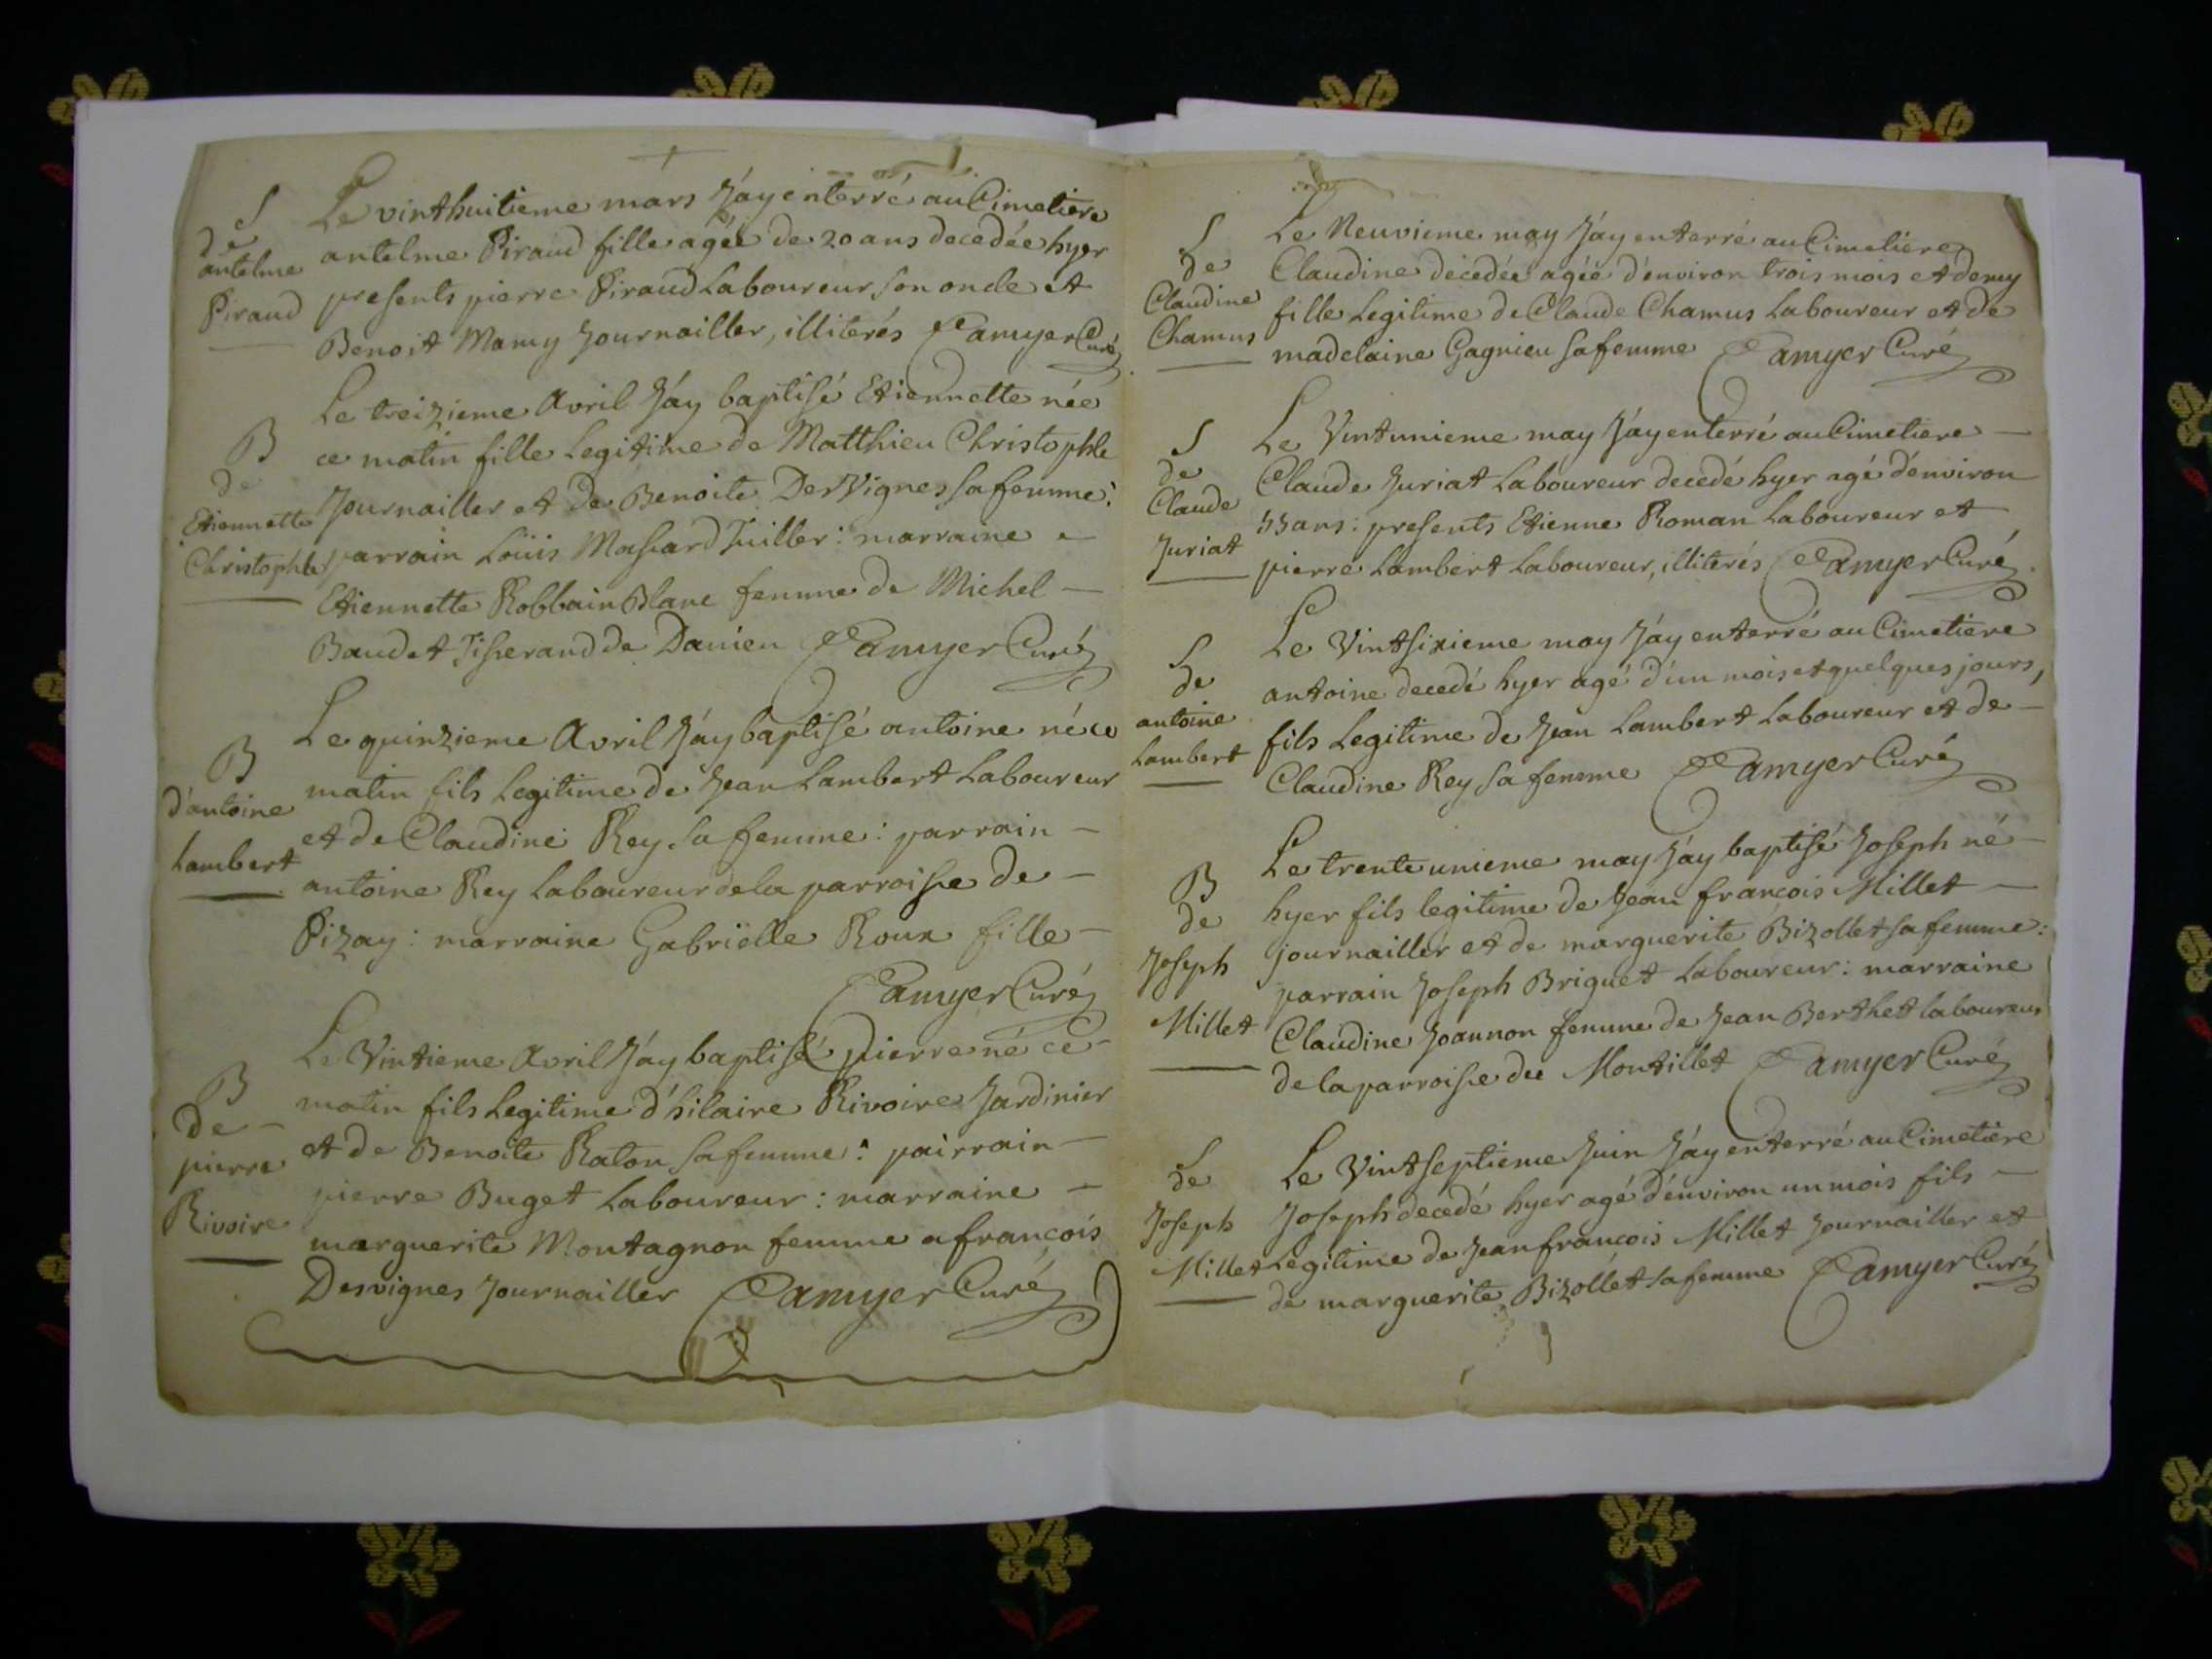 S
de
antelme
Piraud
Le vinthuitieme mars J'ay enterré au Cimetiere
antelme Piraud fille agée de 20 ans decedée hyer
presents pierre Piraud Laboureur son oncle et
Benoit Mamy Journailler, illiterés Pamyer Curé
B
de
Etiennette
Christophle
Le treizieme Avril J'ay baptisé Etiennette née
ce matin fille Legitime de Matthieu Christophle
Journailler et de Benoite DesVignes sa femme:
parrain Loüis Massard Tuiller: marraine
Etiennette Robbain Blanc femme de Michel
Baudet Tisserand de Danieu Pamyer Curé
B
d'antoine
Lambert
Le quinzieme Avril J'ay baptisé antoine né ce
matin fils Legitime de Jean Lambert Laboureur
et de Claudine Rey sa femme: parrain
antoine Rey Laboureur de la parroisse de
Pizay: marraine Gabriëlle Roux fille
Pamyer Curé
B
de
pierre
Rivoire
Le Vintieme Avril J'ay baptisé pierre né ce
matin fils Legitime d'hilaire Rivoire Jardinier
et de Benoite Raton sa femme: pairrain
pierre Buget Laboureur: marraine
marguerite Montagnon femme a francois
Desvignes Journailler Pamyer Curé
S
de
Claudine
Chamus
Le Neuvieme may J'ay enterré au Cimetiere
Claudine decedée agée d'environ trois mois et demy
fille Legitime de Claude Chamus Laboureur et de
madelaine Gagnieu sa femme Pamyer Curé
S
de
Claude
Juriat
Le Vintunieme may J'ay enterré au Cimetiere
Claude Juriat Laboureur decedé hyer agé d'environ
55 ans: presents Etienne Roman Laboureur et
pierre Lambert Laboureur, illiterés Pamyer Curé
S
de
antoine
Lambert
Le Vintsixieme may J'ay enterré au Cimetiere
antoine decedé hyer agé d'un mois et quelques jours,
fils Legitime de Jean Lambert Laboureur et de
Claudine Rey sa femme Pamyer Curé
B
de
Joseph
Millet
Le trente unieme may J'ay baptisé Joseph né
hyer fils legitime de Jean francois Millet
journailler et de marguerite Bizollet sa femme:
parrain Joseph Briguet Laboureur: marraine
Claudine Joannon femme de Jean Berthet laboureur
de la parroisse du Montillet Pamyer Curé
S
de
Joseph
Millet
Le Vintseptieme Juin J'ay enterré au Cimetiere
Joseph decedé hyer agé d'environ un mois fils
Legitime de Jean francois Millet Journailler et
de marguerite Bizollet sa femme Pamyer Curé